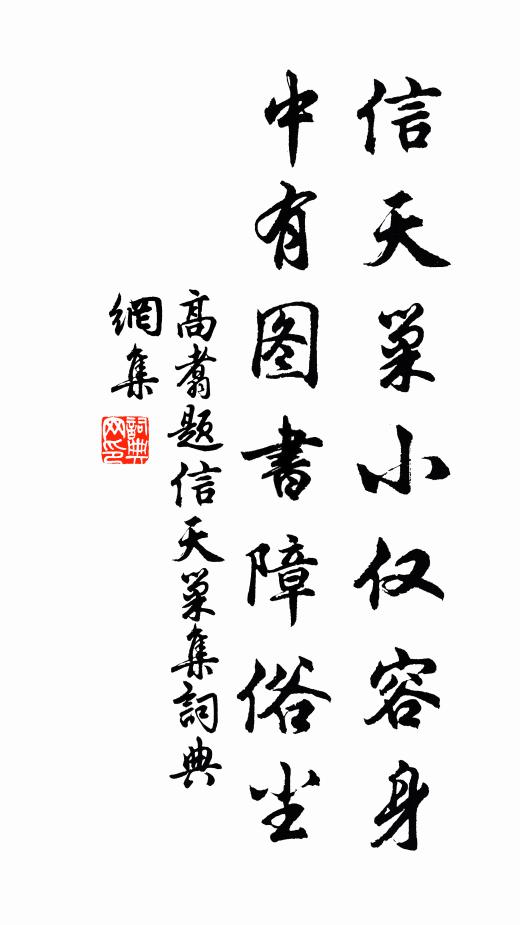 信天巢小仅容身
中有图書障俗尘
高翥题信天巢集詞典
網集
詞典
网印